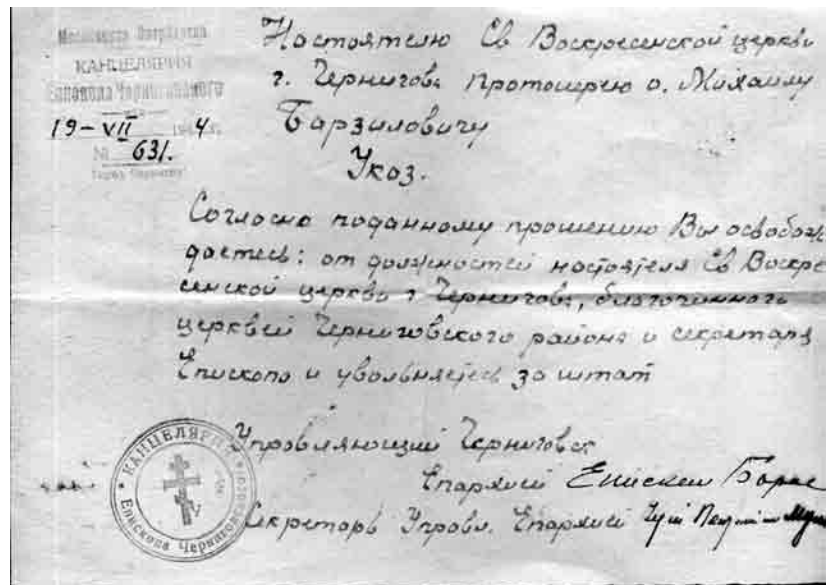 Московская Патриархия
КАНЦЕЛЯРИЯ
Епископа Черниговского
19-VII 1944 г.
№ 631.
Настоятелю Св Воскресенской церкви
г. Чернигова Протоиерею о. Михаилу
Барзиловичу
Указ.
Согласно поданному прошению Вы освобож
даетесь: от должностей настоятеля Св Воскре
сенской церкви г. Чернигова, благочинного
церквей Черниговского района и секретаря
Епископа и увольняетесь за штат
Управляющий Черниговск.
Епархией Епископ Борис
Секретарь Управл. Епархией
КАНЦЕЛЯРИЯ
Епископа Черниговского